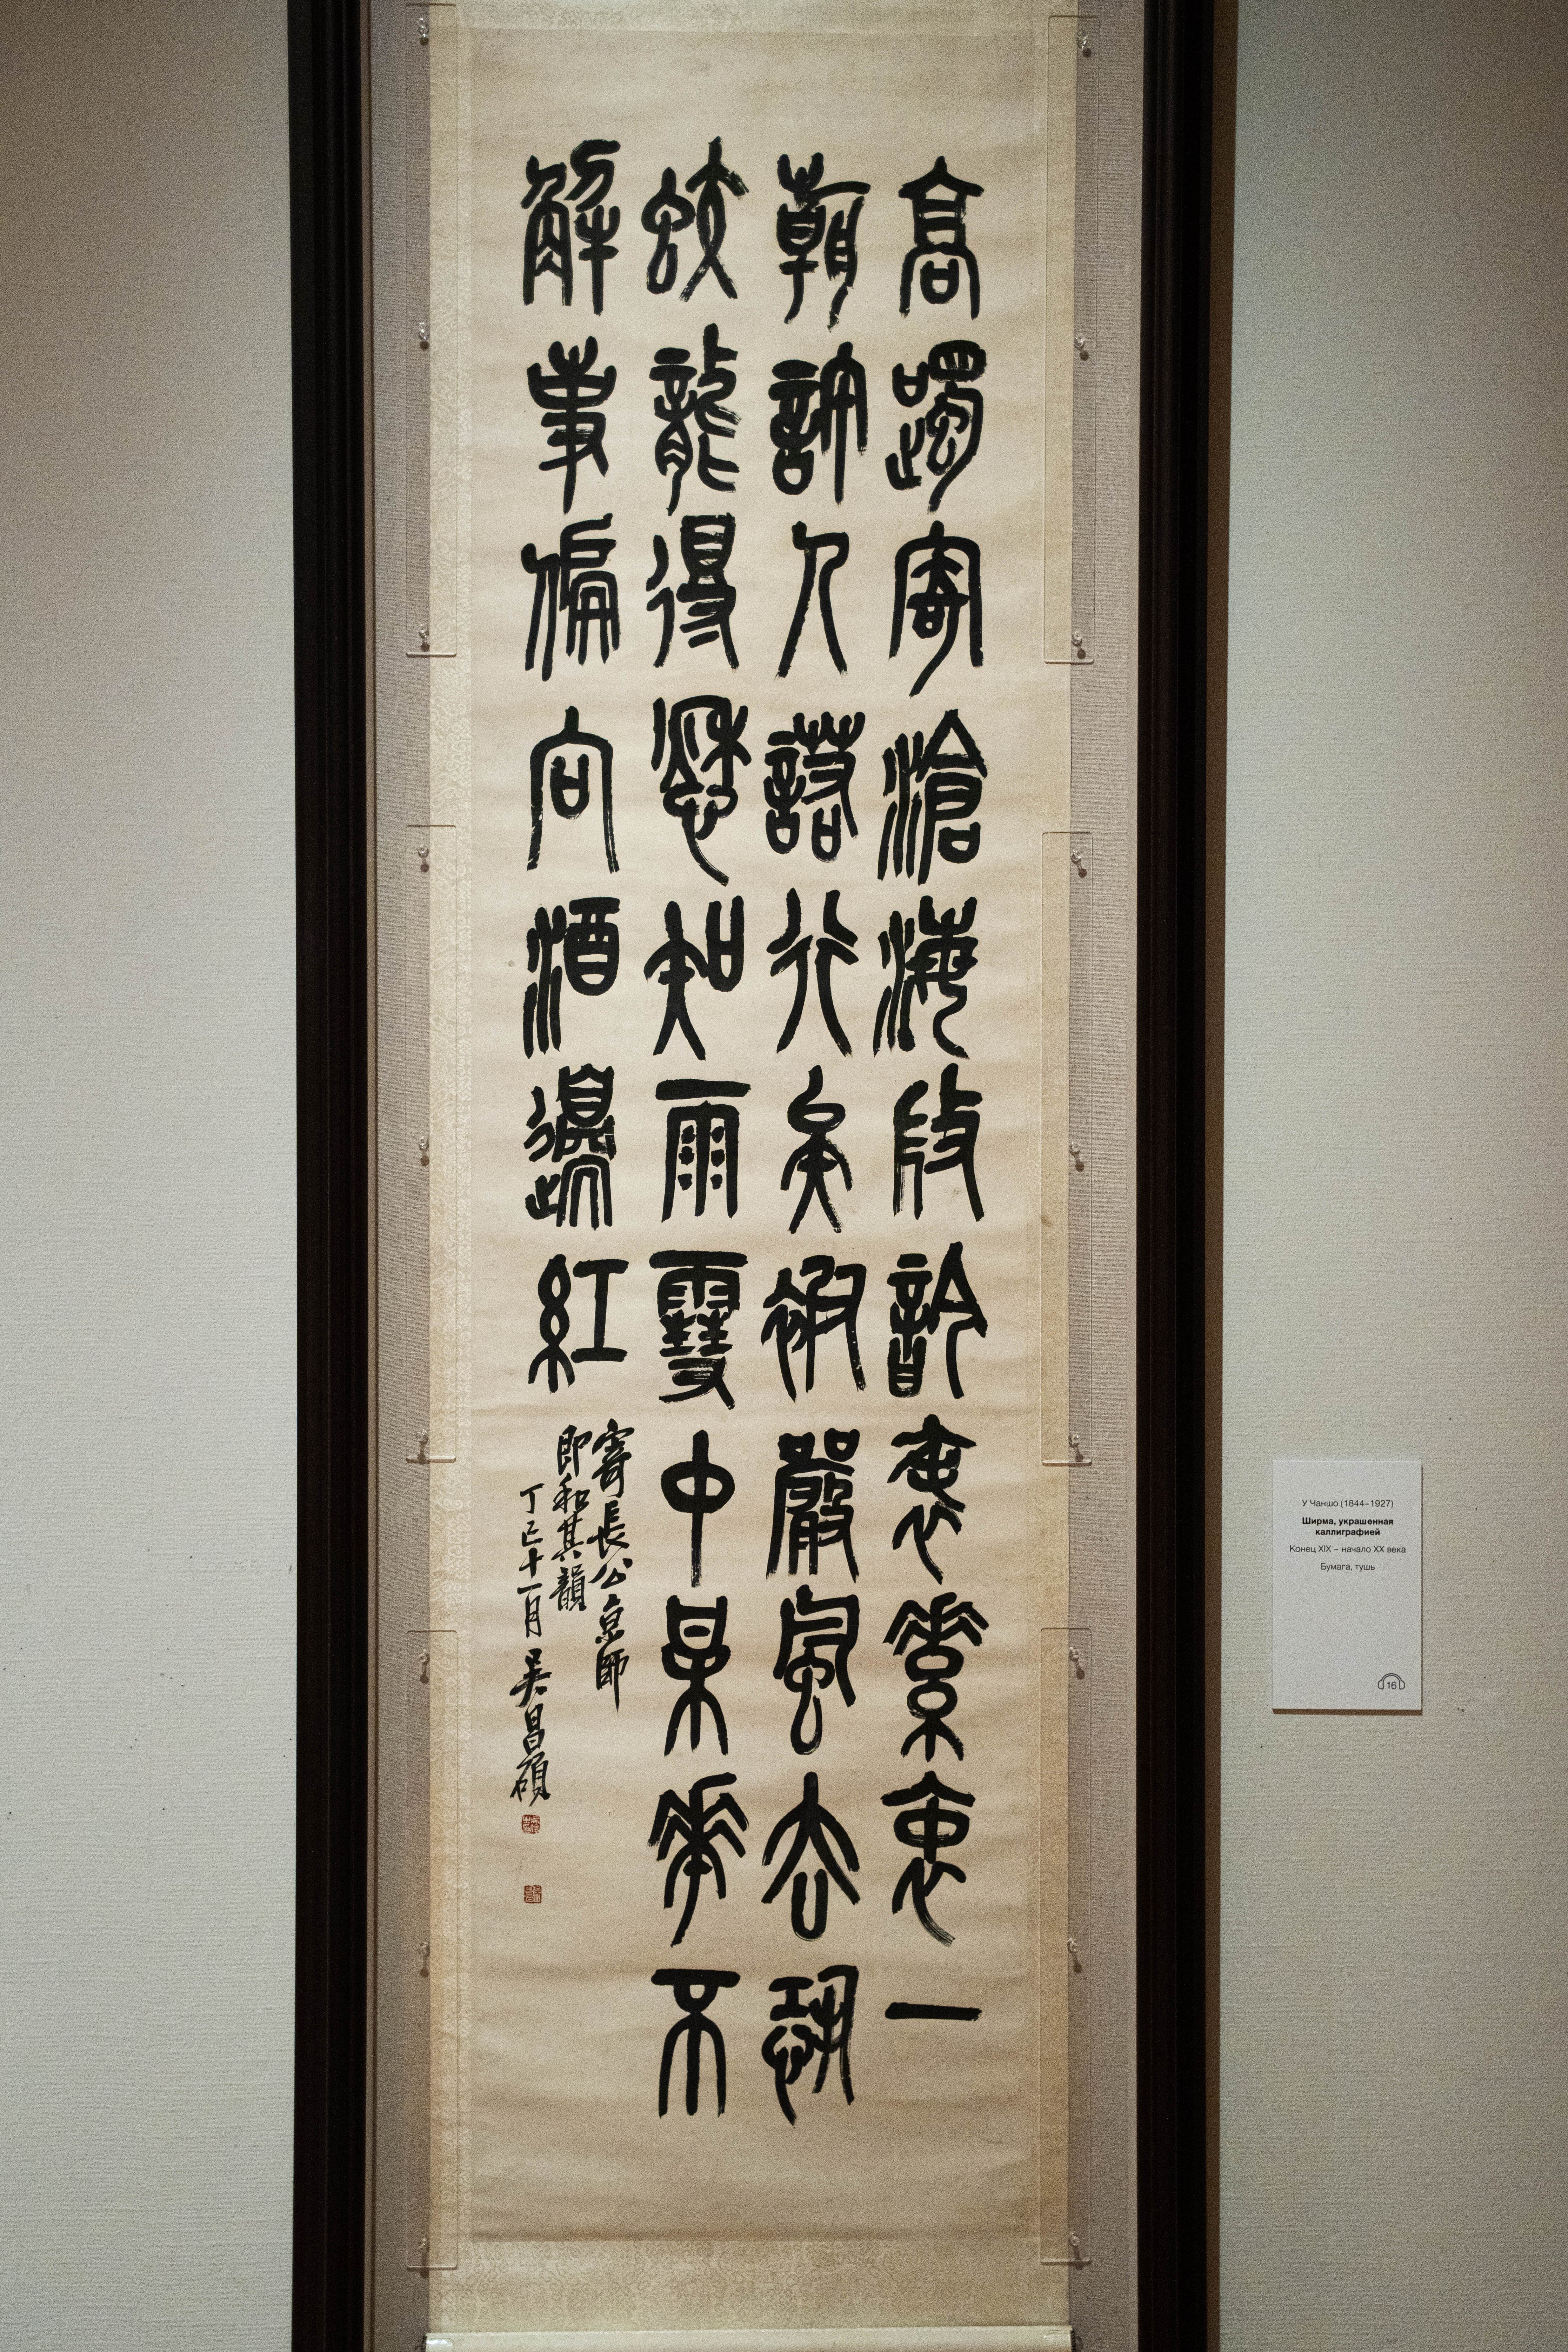 高躅寄滄海素衷一
朝訥人諾行矣嚴風去恐
蛟龍得愁知雨雪中某華不
解事偏向酒邊紅
寄長公京師
即和其韻
丁巳十一月 吳昌碩
У Чаншо (1844–1927)
Ширма, украшенная
каллиграфией
Конец XIX – начало XX века
Бумага, тушь
16